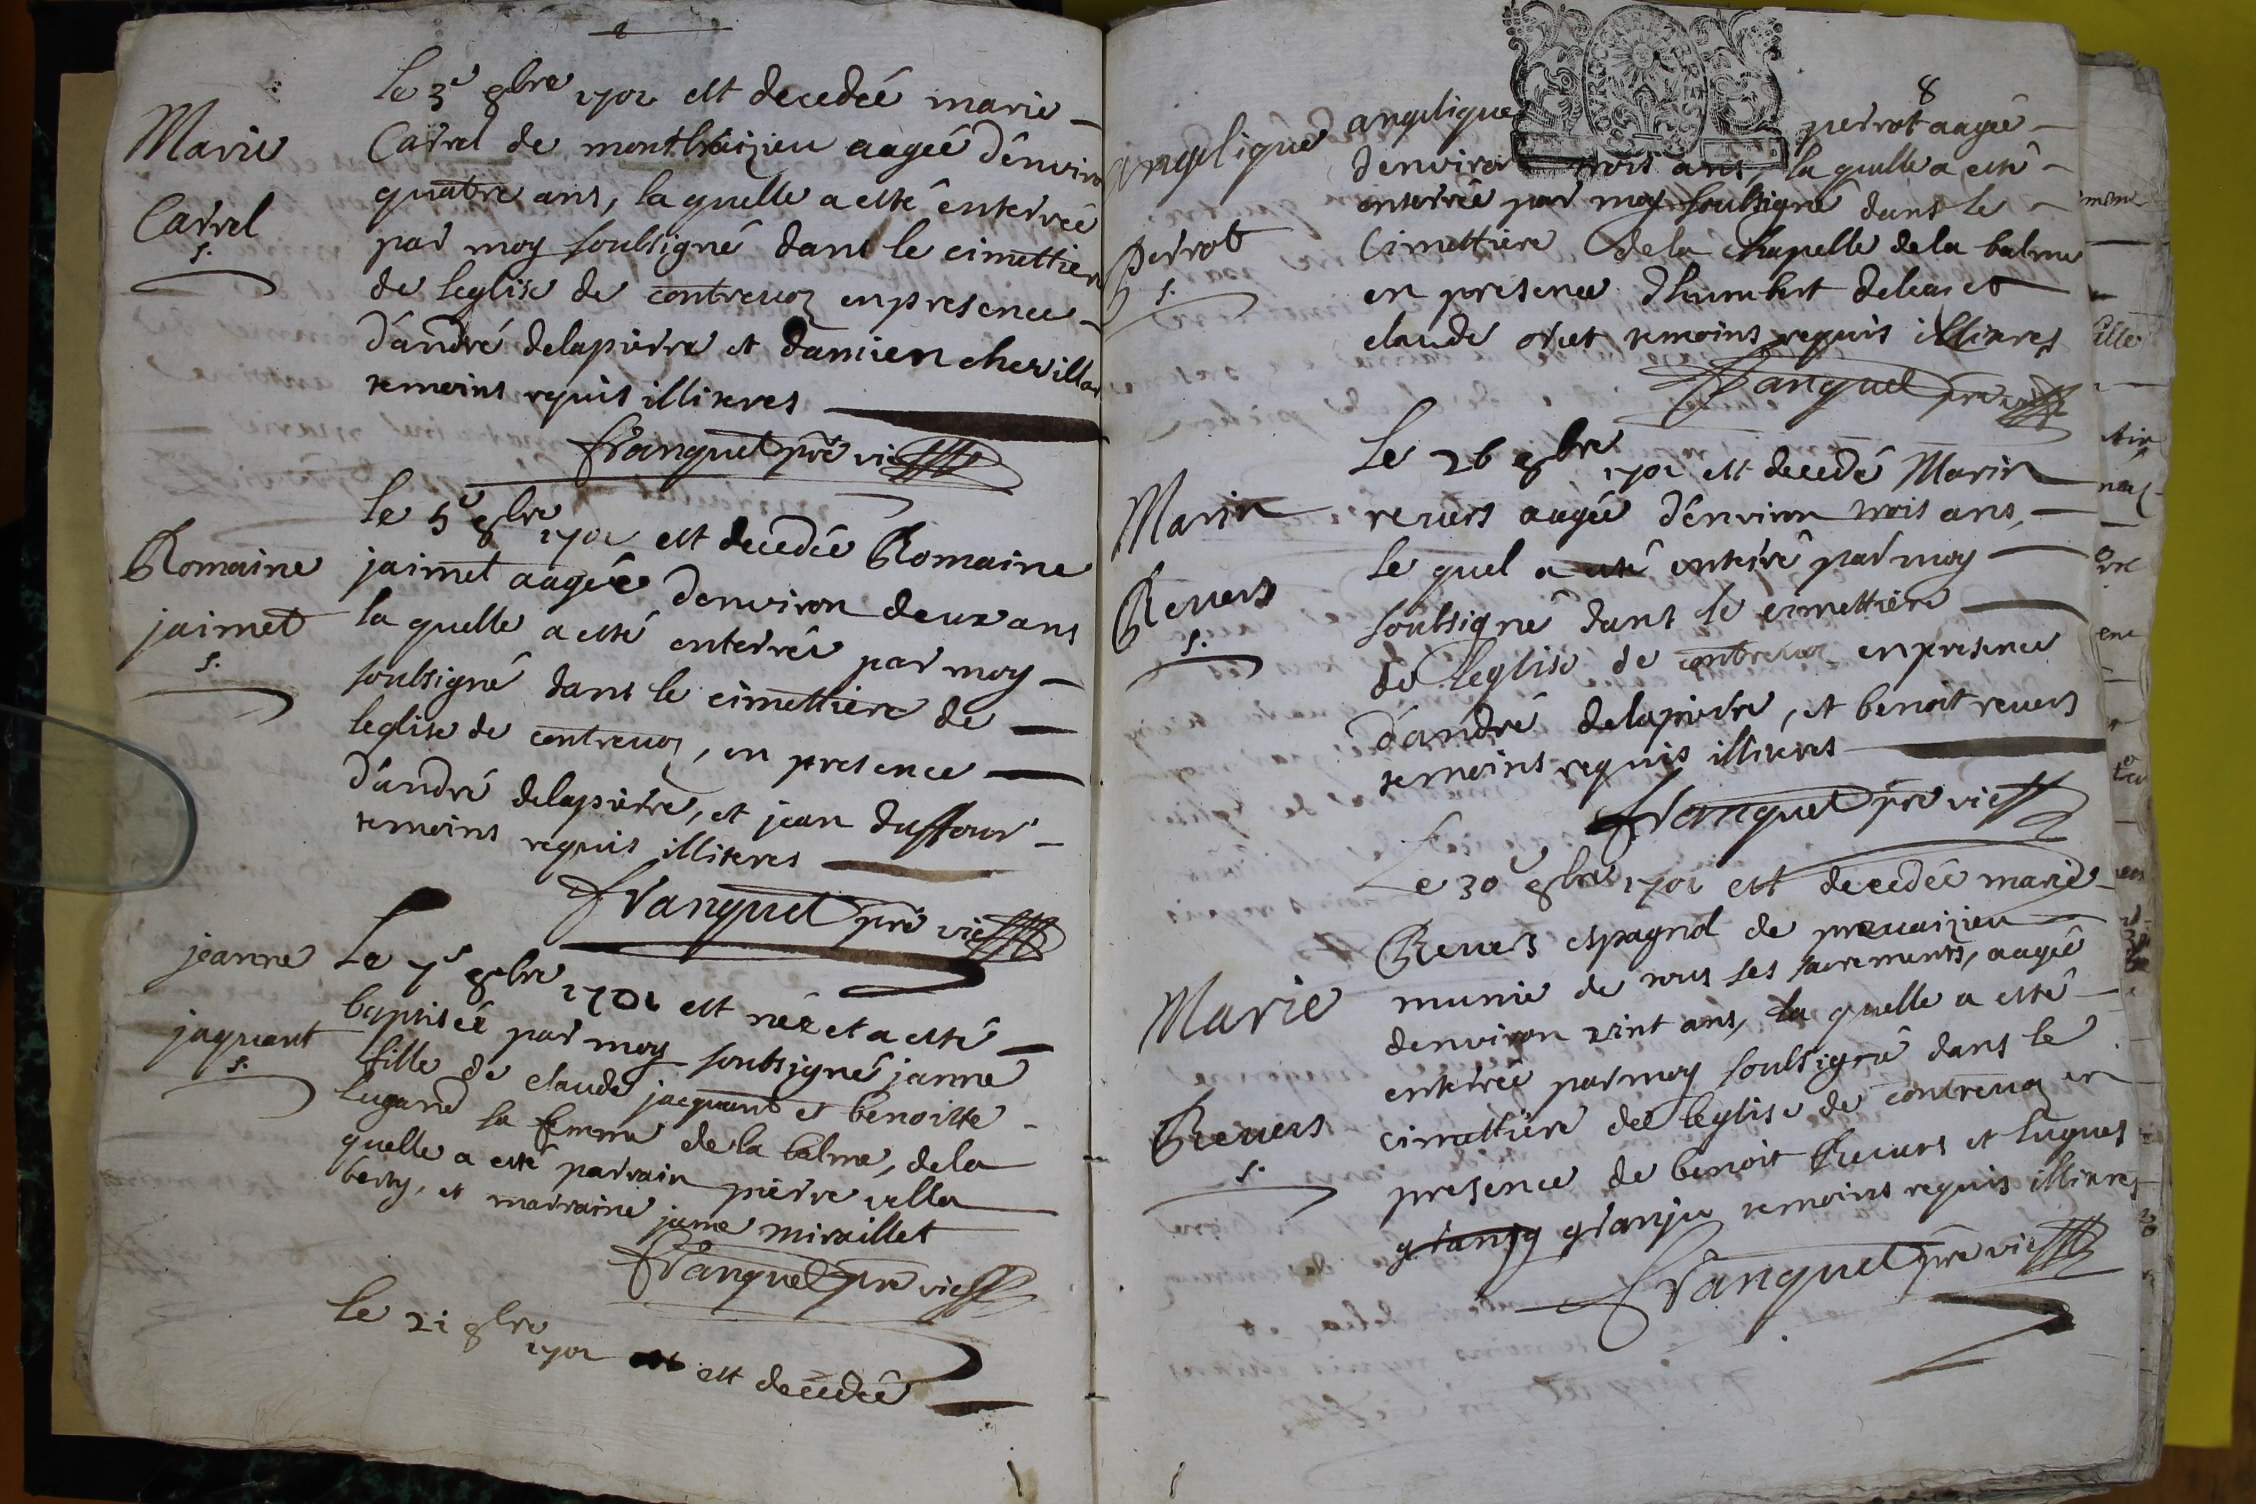 Marie
Carrel
s.
le 3e 8bre 1701 est decedeé marie
Carrel de montbreizieu aageé d'environ
quattre ans, la quelle a esté enterreé
par moy soubsigné dans le cimettiere
de leglise de contrevoz en presence
d'andré delapierre et damien chevillar
temoins requis illiteres
franquet pre vic
Romaine
jaimet
s.
le 5e 8bre 1701 est decedeé Romaine
jaimet aageé denviron deux ans
la quelle a esté enterreé par moy
soubsigné dans le cimettiere de
leglise de contrevoz, en presence
d'andré delapierre, et jean duffour
temoins requis illiteres
franquet pre vic
jeanne
jaquant
s.
Le 7e 8bre 1701 est neé et a esté
baptiseé par moy soubsigné janne
fille de claude jacquant et benoitte
lugand sa femme de la balme, de la
quelle a esté parrain pierre vella
berty, et marraine jane miraillet
franquet pre vic
le 21 8bre 1701 est decedeé
8
angelique
perrot
s.
angelique perrot aageé
denviron trois ans, la quelle a esté
enterreé par moy soubsigné dans le
cimettiere de la chapelle de la balme
en presence d'humbert
claude temoins requis illiteres
franquet pre vic
Marin
Revers
s.
Le 26 8bre 1701 est decedé Marin
revers aageé d'environ trois ans,
le quel a esté enterré par moy
soubsigné dans le cimettiere
de leglise de contrevoz en presence
d'andré delapierre, et benoit revers
temoins requis illiteres
franquet pre vic
Marie
Revers
s.
Le 30e 8bre 1701 est decedeé marie
Revers espagnol de prevaizieu
munie de tous ses sacrements, aageé
denviron vint ans, la quelle a esté
enterreé par moy soubsigné dans le
cimettiere de leglise de contrevoz en
presence de benoit Revers et hugues
granjy granju temoins requis illiteres
franquet pre vic